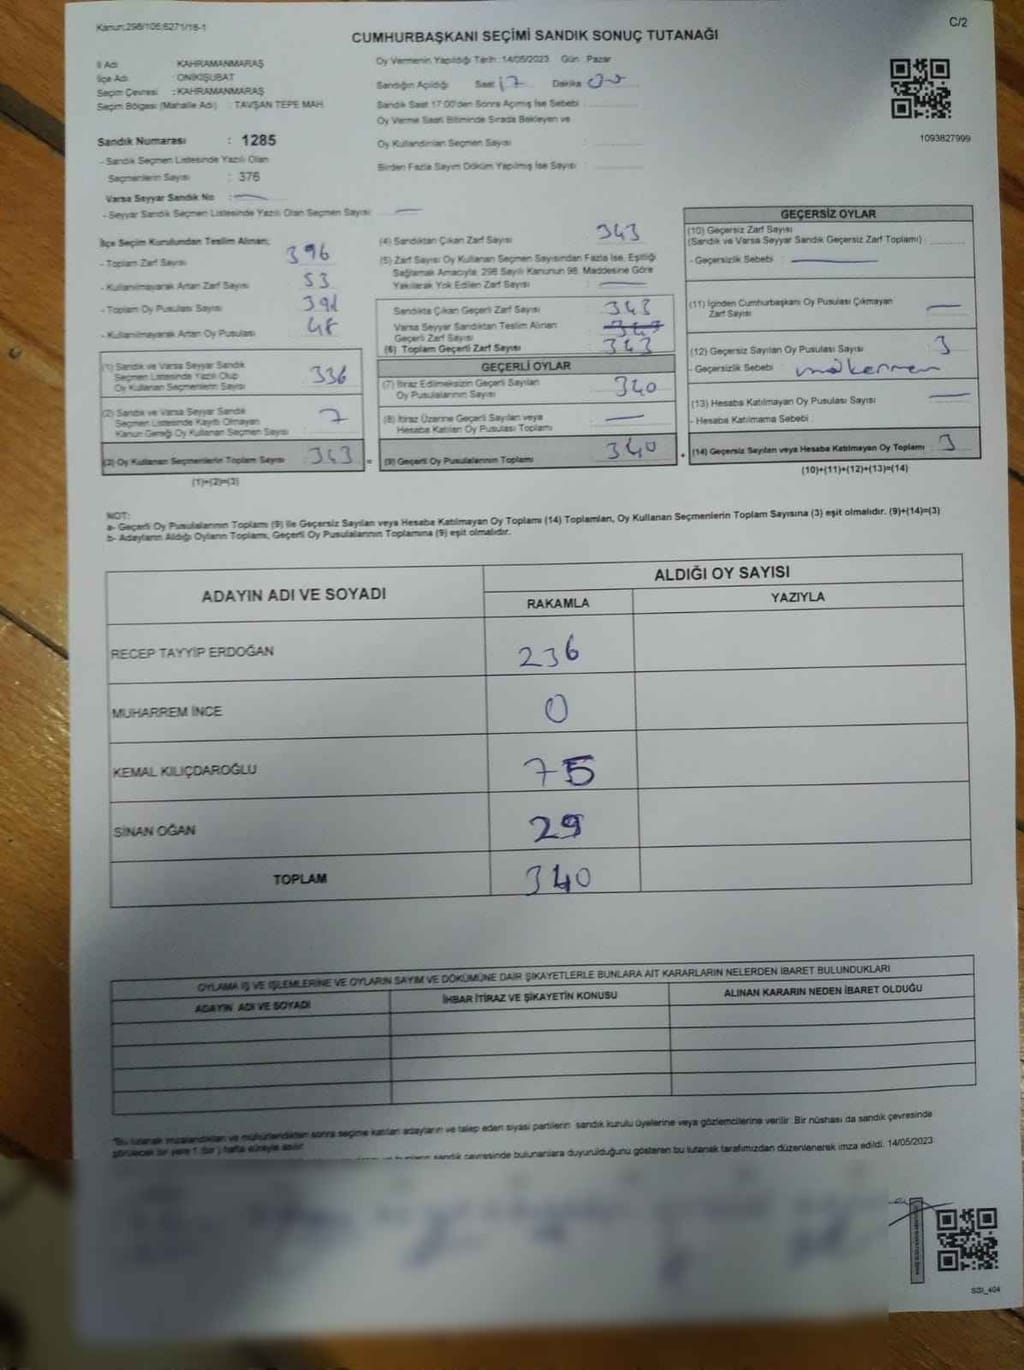 Kanun:298/106,6271/18-1
C/2
CUMHURBAŞKANI SEÇİMİ SANDIK SONUÇ TUTANAĞI
İl Adı KAHRAMANMARAŞ
İlçe Adı : ONİKİŞUBAT
Seçim Çevresi : KAHRAMANMARAŞ
Seçim Bölgesi (Mahalle Adı) : TAVŞAN TEPE MAH.
Oy Vermenin Yapıldığı Tarih : 14/05/2023 Gün : Pazar
Sandığın Açıldığı Saat 17 Dakika 00
Sandık Saat 17:00'den Sonra Açımış İse Sebebi
Oy Verme Saati Bitiminde Sırada Bekleyen ve
Oy Kullandırılan Seçmen Sayısı :
Birden Fazla Sayım Döküm Yapılmış İse Sayısı :
1093827999
Sandık Numarası : 1285
- Sandık Seçmen Listesinde Yazılı Olan
Seçmenlerin Sayısı : 376
Varsa Seyyar Sandık No : —
- Seyyar Sandık Seçmen Listesinde Yazılı Olan Seçmen Sayısı —
İlçe Seçim Kurulundan Teslim Alınan;
- Toplam Zarf Sayısı 396
- Kullanılmayarak Artan Zarf Sayısı 53
- Toplam Oy Pusulası Sayısı 391
- Kullanılmayarak Artan Oy Pusulası 48
(1) Sandık ve Varsa Seyyar Sandık
Seçmen Listesinde Yazılı Olup
Oy Kullanan Seçmenlerin Sayısı 336
(2) Sandık ve Varsa Seyyar Sandık
Seçmen Listesinde Kayıtlı Olmayan
Kanun Gereği Oy Kullanan Seçmen Sayısı 7
(3) Oy Kullanan Seçmenlerin Toplam Sayısı 343 =
(1)+(2)=(3)
(4) Sandıktan Çıkan Zarf Sayısı 343
(5) Zarf Sayısı Oy Kullanan Seçmen Sayısından Fazla İse, Eşitliği
Sağlamak Amacıyla, 298 Sayılı Kanunun 98. Maddesine Göre
Yakılarak Yok Edilen Zarf Sayısı : —
Sandıkta Çıkan Geçerli Zarf Sayısı 343
Varsa Seyyar Sandıktan Teslim Alınan
Geçerli Zarf Sayısı 343
(6) Toplam Geçerli Zarf Sayısı 343
GEÇERLİ OYLAR
(7) İtiraz Edilmeksizin Geçerli Sayılan
Oy Pusulalarının Sayısı 340
(8) İtiraz Üzerine Geçerli Sayılan veya
Hesaba Katılan Oy Pusulası Toplamı —
(9) Geçerli Oy Pusulalarının Toplamı 340 +
GEÇERSİZ OYLAR
(10) Geçersiz Zarf Sayısı
(Sandık ve Varsa Seyyar Sandık Geçersiz Zarf Toplamı) :
- Geçersizlik Sebebi : —
(11) İçinden Cumhurbaşkanı Oy Pusulası Çıkmayan
Zarf Sayısı —
(12) Geçersiz Sayılan Oy Pusulası Sayısı 3
- Geçersizlik Sebebi
(13) Hesaba Katılmayan Oy Pusulası Sayısı —
- Hesaba Katılmama Sebebi :
(14) Geçersiz Sayılan veya Hesaba Katılmayan Oy Toplamı 3
(10)+(11)+(12)+(13)=(14)
NOT:
a- Geçerli Oy Pusulalarının Toplamı (9) ile Geçersiz Sayılan veya Hesaba Katılmayan Oy Toplamı (14) Toplamları, Oy Kullanan Seçmenlerin Toplam Sayısına (3) eşit olmalıdır. (9)+(14)=(3)
b- Adayların Aldığı Oyların Toplamı, Geçerli Oy Pusulalarının Toplamına (9) eşit olmalıdır.
ADAYIN ADI VE SOYADI
ALDIĞI OY SAYISI
RAKAMLA YAZIYLA
RECEP TAYYİP ERDOĞAN 236
MUHARREM İNCE 0
KEMAL KILIÇDAROĞLU 75
SİNAN OĞAN 29
TOPLAM 340
OYLAMA İŞ VE İŞLEMLERİNE VE OYLARIN SAYIM VE DÖKÜMÜNE DAİR ŞİKAYETLERLE BUNLARA AİT KARARLARIN NELERDEN İBARET BULUNDUKLARI
ADAYIN ADI VE SOYADI İHBAR İTİRAZ VE ŞİKAYETİN KONUSU ALINAN KARARIN NEDEN İBARET OLDUĞU
"Bu tutanak imzalandıktan ve mühürlendikten sonra seçime katılan adayların ve talep eden siyasi partilerin sandık kurulu üyelerine veya gözlemcilerine verilir. Bir nüshası da sandık çevresinde
görülecek bir yere 1 (bir) hafta süreyle asılır.
sandık çevresinde bulunanlara duyurulduğunu gösteren bu tutanak tarafımızdan düzenlenerek imza edildi. 14/05/2023
SSI_404